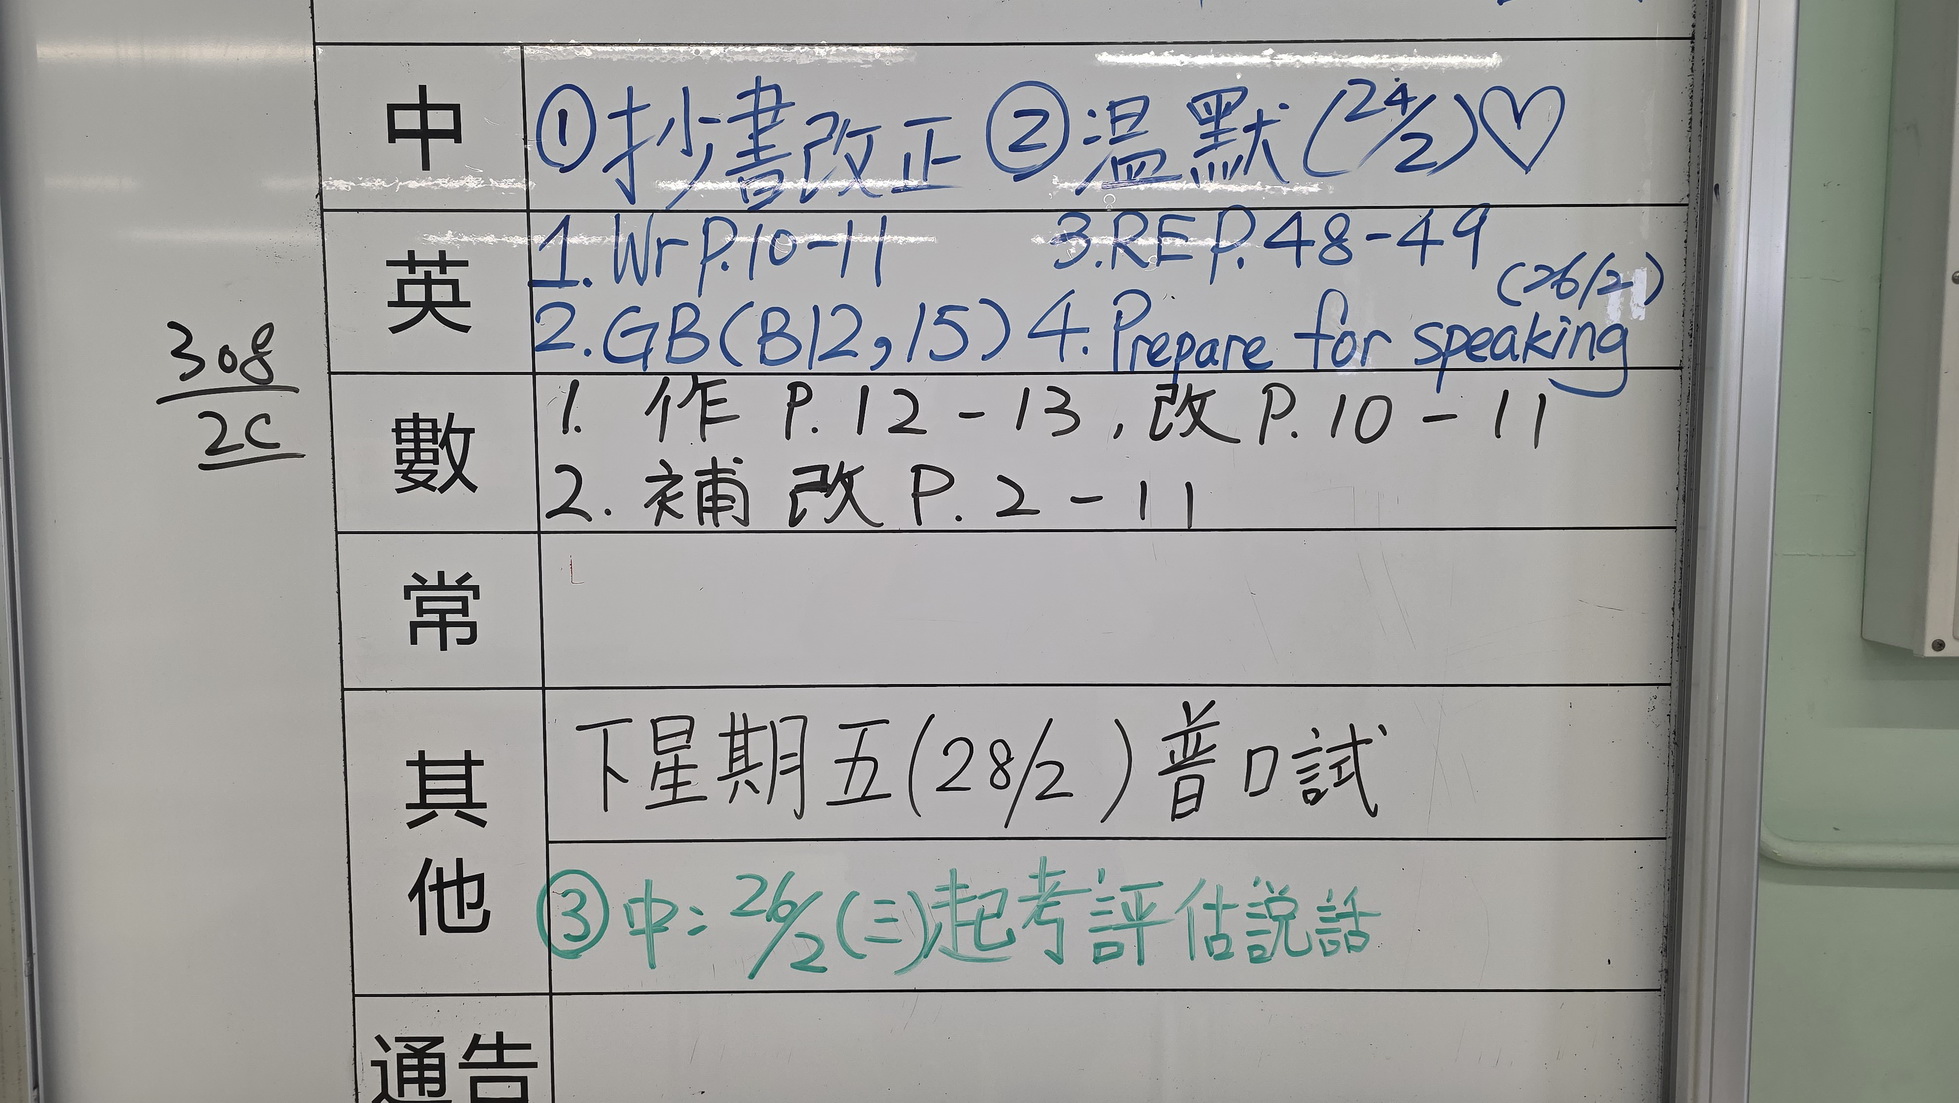 308
2C
中 ①抄書改正 ②溫默(24/2)♡
英 1. Wr P.10-11 3. RE P.48-49
2. GB(B12,15) 4. Prepare for speaking (26/2)
數 1. 作 P.12-13, 改 P.10-11
2. 補 改 P.2-11
常
其他 下星期五(28/2)普口試
③中: 26/2(三)起考評估說話
通告